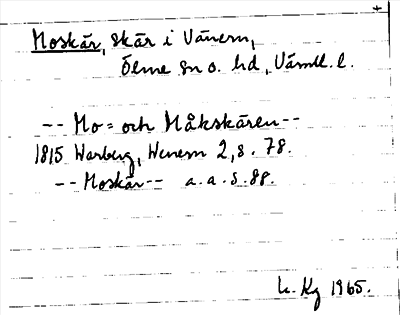 Moskär, skär i Vänern,
Ölme sn o. hd, Värml. l.
-- Mo= och Måkskären --
1815 Warberg, Wenern 2, s. 78.
-- Moskär -- a.a. s. 88.
L. Kg 1965.